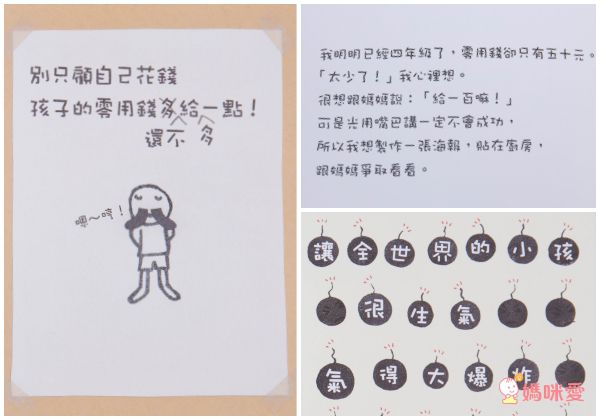 別只顧自己花錢
孩子的零用錢多給一點！
還不 多
嗯～哼！
我明明已經四年級了，零用錢卻只有五十元。
「太少了！」我心裡想。
很想跟媽媽說：「給一百嘛！」
可是光用嘴巴講一定不會成功，
所以我想製作一張海報，貼在廚房，
跟媽媽爭取看看。
讓全世界的小孩
很生氣
氣得大爆炸
媽咪愛